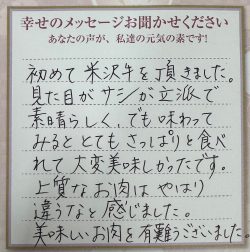 幸せのメッセージお聞かせください
あなたの声が、私達の元気の素です!
初めて米沢牛を頂きました。
見た目がサシが立派で
素晴らしく、でも味わって
みるととてもさっぱりと食べ
れて大変美味しかったです。
上質なお肉はやはり
違うなと感じました。
美味しいお肉を有難うございました。